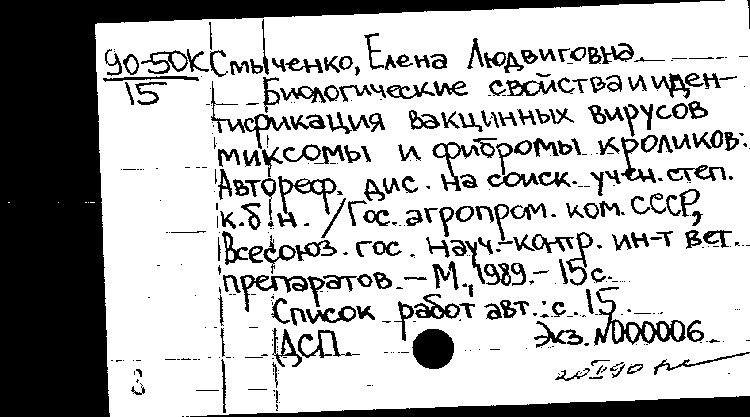 90-50К Смыченко, Елена Людвиговна.
15 Биологические свойства и иден-
тификация вакцинных вирусов
миксомы и фибромы кроликов:
Автореф. дис. на соиск. учен. степ.
к.б.н. / Гос. агропром. ком. СССР,
Всесоюз. гос. науч.-контр. ин-т вет.
препаратов. – М., 1989. – 15 с.
Список работ авт.: с. 15.
ДСП. Экз. N000006.